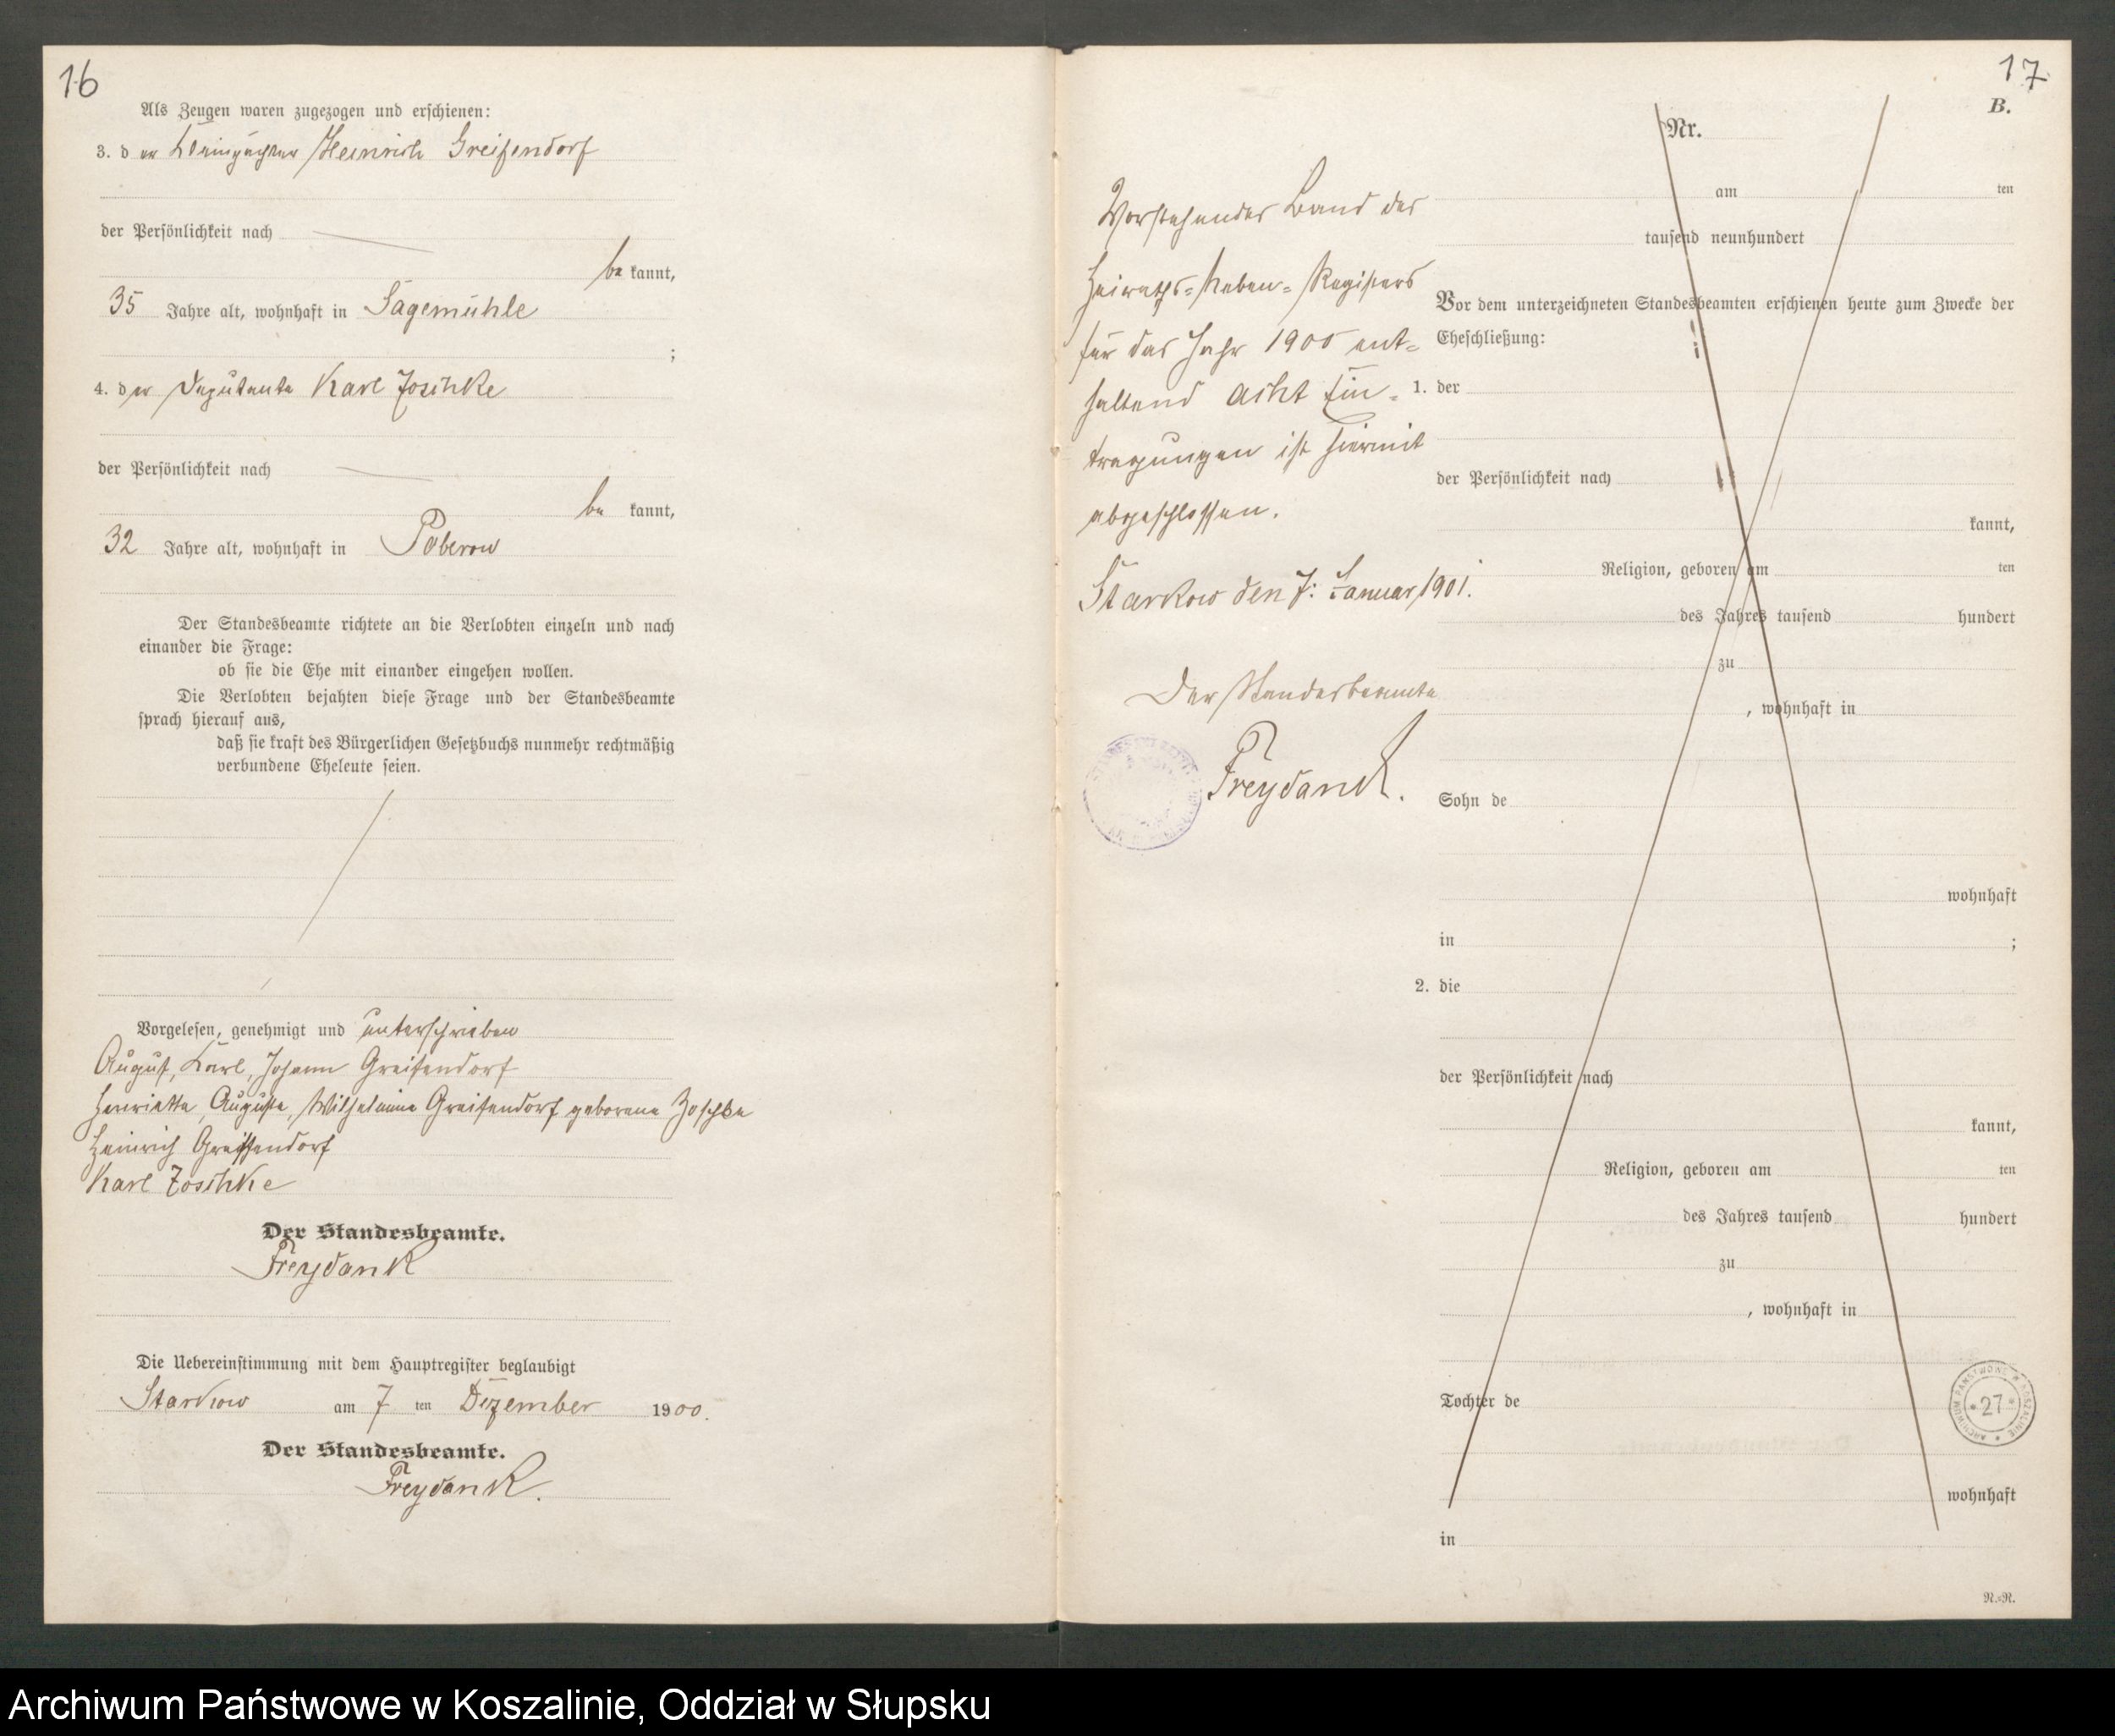 16
Als Zeugen waren zugezogen und erschienen:
3. der Kleinpächter Heinrich Greifendorf
der Persönlichkeit nach
be kannt,
35 Jahre alt, wohnhaft in Sagemühle
;
4. der Deputante Karl Zoschke
der Persönlichkeit nach
be kannt,
32 Jahre alt, wohnhaft in Poberow
Der Standesbeamte richtete an die Verlobten einzeln und nach
einander die Frage:
ob sie die Ehe mit einander eingehen wollen.
Die Verlobten bejahten diese Frage und der Standesbeamte
sprach hierauf aus,
daß sie kraft des Bürgerlichen Gesetzbuchs nunmehr rechtmäßig
verbundene Eheleute seien.
Vorgelesen, genehmigt und unterschrieben
August, Karl, Johann Greifendorf
Henriette, Auguste, Wilhelmine Greifendorf geborene Zoschke
Heinrich Greiffendorf
Karl Zoschke
Der Standesbeamte.
Freydank
Die Uebereinstimmung mit dem Hauptregister beglaubigt
Starkow am 7 ten Dezember 1900.
Der Standesbeamte.
Freydank.
17
B.
Vorstehender Band des
Heiraths-Neben-Registers
für das Jahr 1900 ent-
haltend acht Ein-
tragungen ist hiermit
abgeschlossen.
Starkow den 7. Januar 1901.
Der Standesbeamte
Freydank.
Nr.
am ten
tausend neunhundert
Vor dem unterzeichneten Standesbeamten erschienen heute zum Zwecke der
Eheschließung:
1. der
der Persönlichkeit nach
kannt,
Religion, geboren am ten
des Jahres tausend hundert
zu
, wohnhaft in
Sohn de
wohnhaft
in ;
2. die
der Persönlichkeit nach
kannt,
Religion, geboren am ten
des Jahres tausend hundert
zu
, wohnhaft in
Tochter de
ARCHIWUM PAŃSTWOWE W KOSZALINIE
* 27 *
wohnhaft
in
N.-R.
Archiwum Państwowe w Koszalinie, Oddział w Słupsku